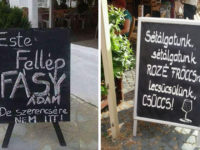 Este
Fellép
FÁSY
ÁDÁM
De szerencsére
NEM ITT!
Sétálgatunk,
sétálgatunk
ROZÉ FRÖCCS!
Lecsücsülünk,
CSÜCCS!